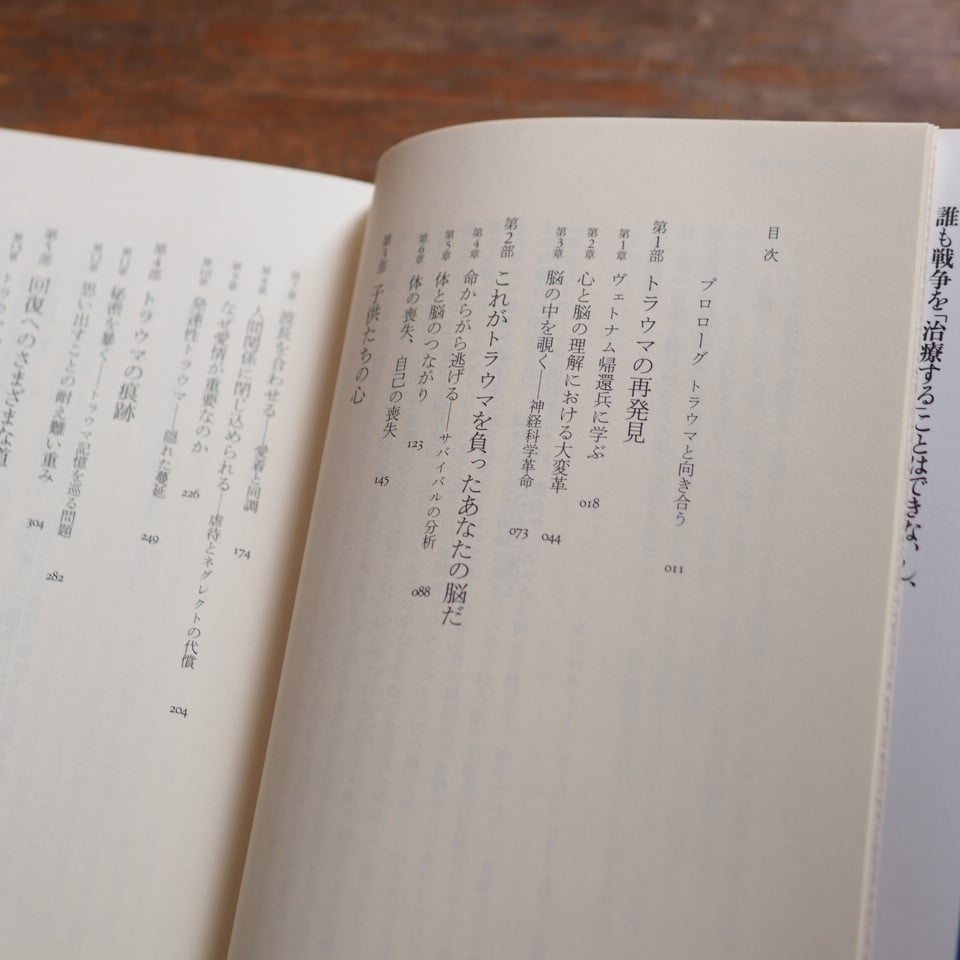 誰も戦争を「治療することはできない、
目次
プロローグ トラウマと向き合う 011
第1部 トラウマの再発見
第1章 ヴェトナム帰還兵に学ぶ 018
第2章 心と脳の理解における大変革 044
第3章 脳の中を覗く——神経科学革命 073
第2部 これがトラウマを負ったあなたの脳だ
第4章 命からがら逃げる——サバイバルの分析 088
第5章 体と脳のつながり 123
第6章 体の喪失、自己の喪失 145
第3部 子供たちの心
波長を合わせる——愛着と同調 174
人間関係に閉じ込められる——虐待とネグレクトの代償 204
なぜ愛情が重要なのか 226
発達性トラウマ——隠れた蔓延 249
第4部 トラウマの痕跡
秘密を暴く——トラウマ記憶を巡る問題 282
思い出すことの耐え難い重み 304
第5部 回復へのさまざまな道